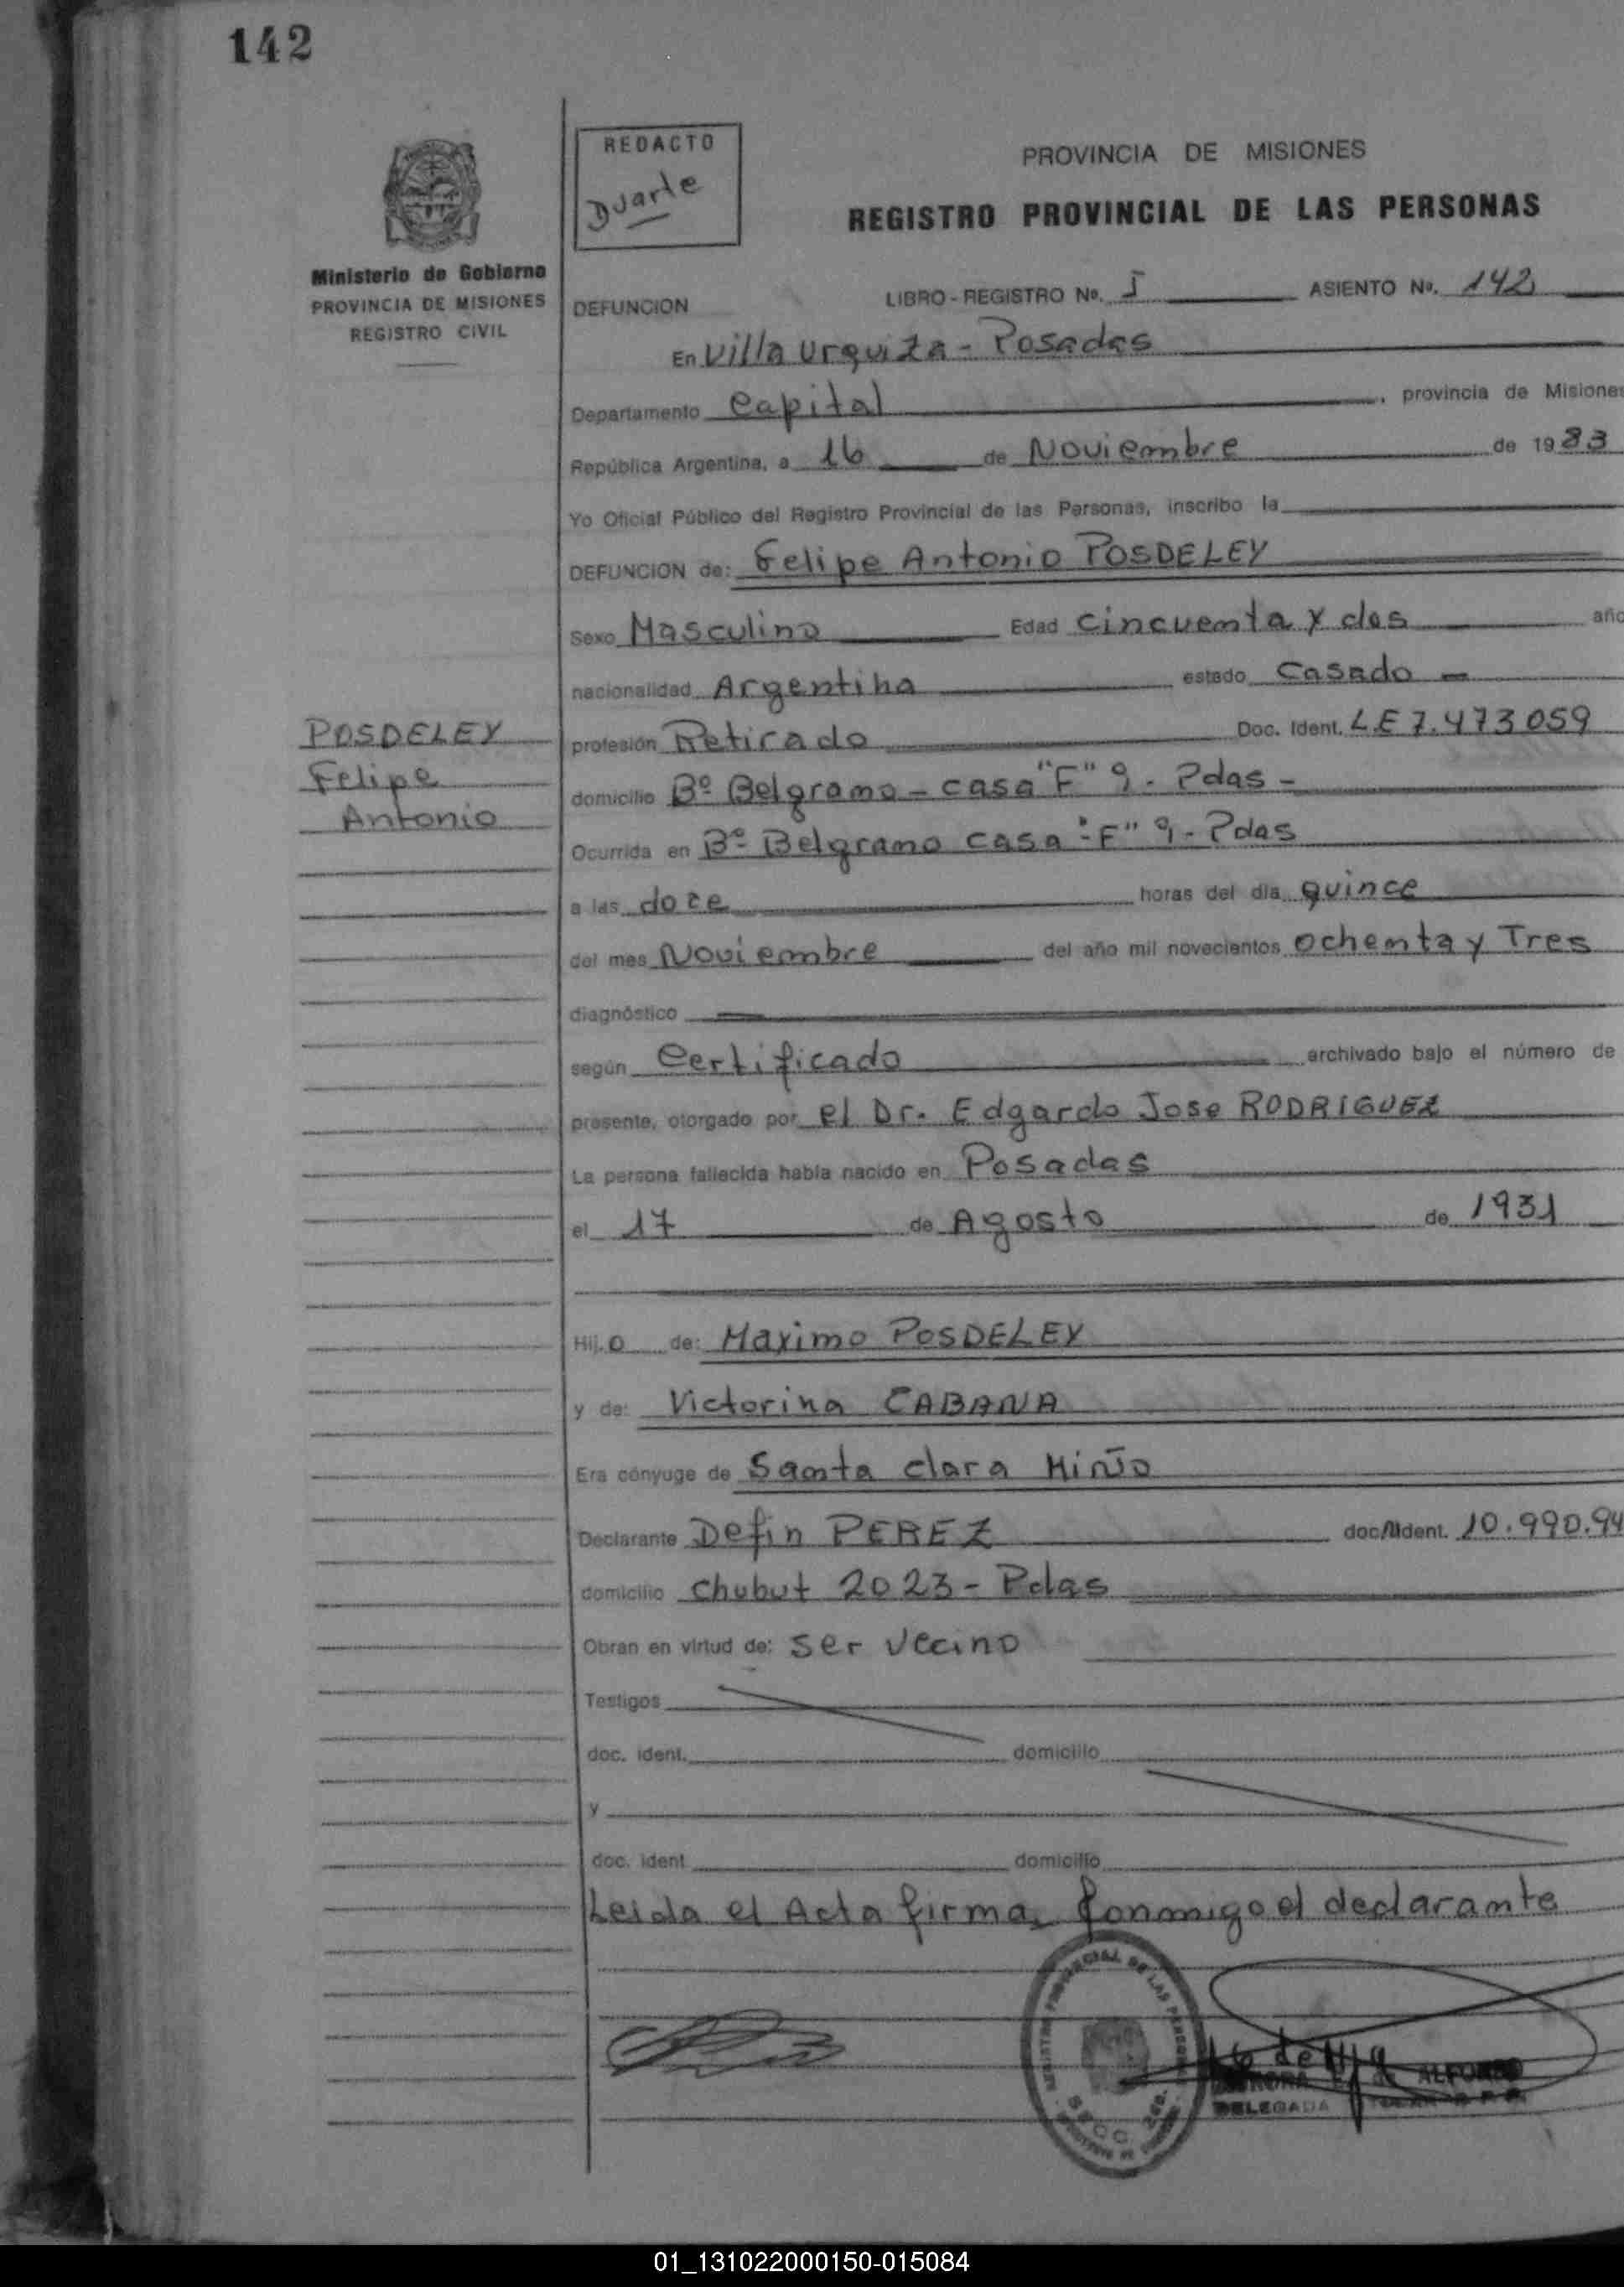 142
REDACTO
Duarte
Ministerio de Gobierno
PROVINCIA DE MISIONES
REGISTRO CIVIL
PROVINCIA DE MISIONES
REGISTRO PROVINCIAL DE LAS PERSONAS
DEFUNCION LIBRO-REGISTRO No. I ASIENTO No. 142
En Villa Urquiza - Posadas
Departamento Capital, provincia de Misiones
República Argentina, a 16 de Noviembre de 1983
Yo Oficial Público del Registro Provincial de las Personas, inscribo la
DEFUNCION de: Felipe Antonio POSDELEY
Sexo Masculino Edad cincuenta y dos año
nacionalidad Argentina estado Casado -
POSDELEY
Felipe
Antonio
profesión Retirado Doc. Ident. L.E 7.473059
domicilio Bº Belgrano - casa "F" 9 - Pdas -
Ocurrida en Bº Belgrano casa "F" 9 - Pdas
a las doce horas del día quince
del mes Noviembre del año mil novecientos ochenta y Tres
diagnóstico
según Certificado archivado bajo el número de
presente, otorgado por el Dr. Edgardo Jose RODRIGUEZ
La persona fallecida había nacido en Posadas
el 17 de Agosto de 1931
Hij.o de: Maximo POSDELEY
y de: Victorina CABANA
Era cónyuge de Santa Clara Miño
Declarante Defin PEREZ doc/Ident. 10.990.94
domicilio Chubut 2023 - Pdas
Obran en virtud de: ser vecino
Testigos
doc. ident. domicilio
y
doc. ident domicilio
Leida el Acta firma conmigo el declarante
REGISTRO PROVINCIAL DE LAS PERSONAS
SECC.
de ALFONSO
DELEGADA
01_131022000150-015084